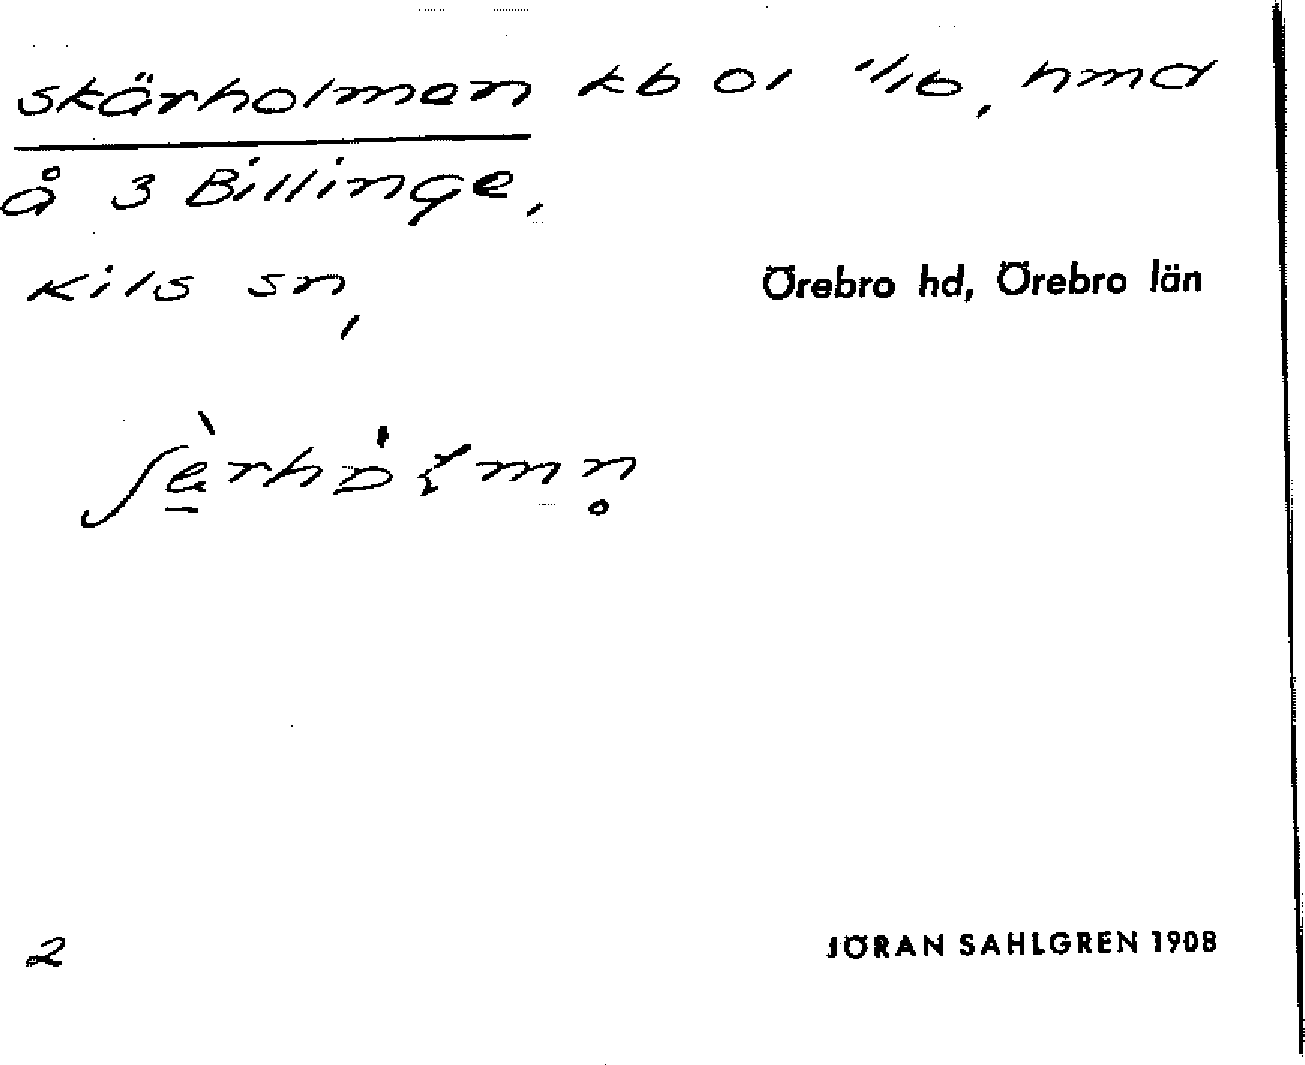 Skärholmen kb 01 11/16, hmd
å 3 Billinge,
Kils sn,
Örebro hd, Örebro län
2
JÖRAN SAHLGREN 1908